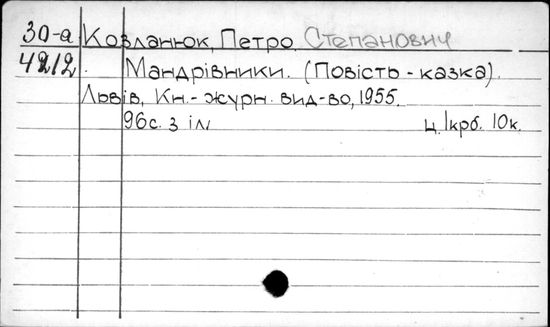 30-а Козланюк, Петро Степанович
4212. Мандрівники. (Повість - казка).
Львів, Кн.- журн. вид-во, 1955.
96с. з іл ц. 1крб. 10к.